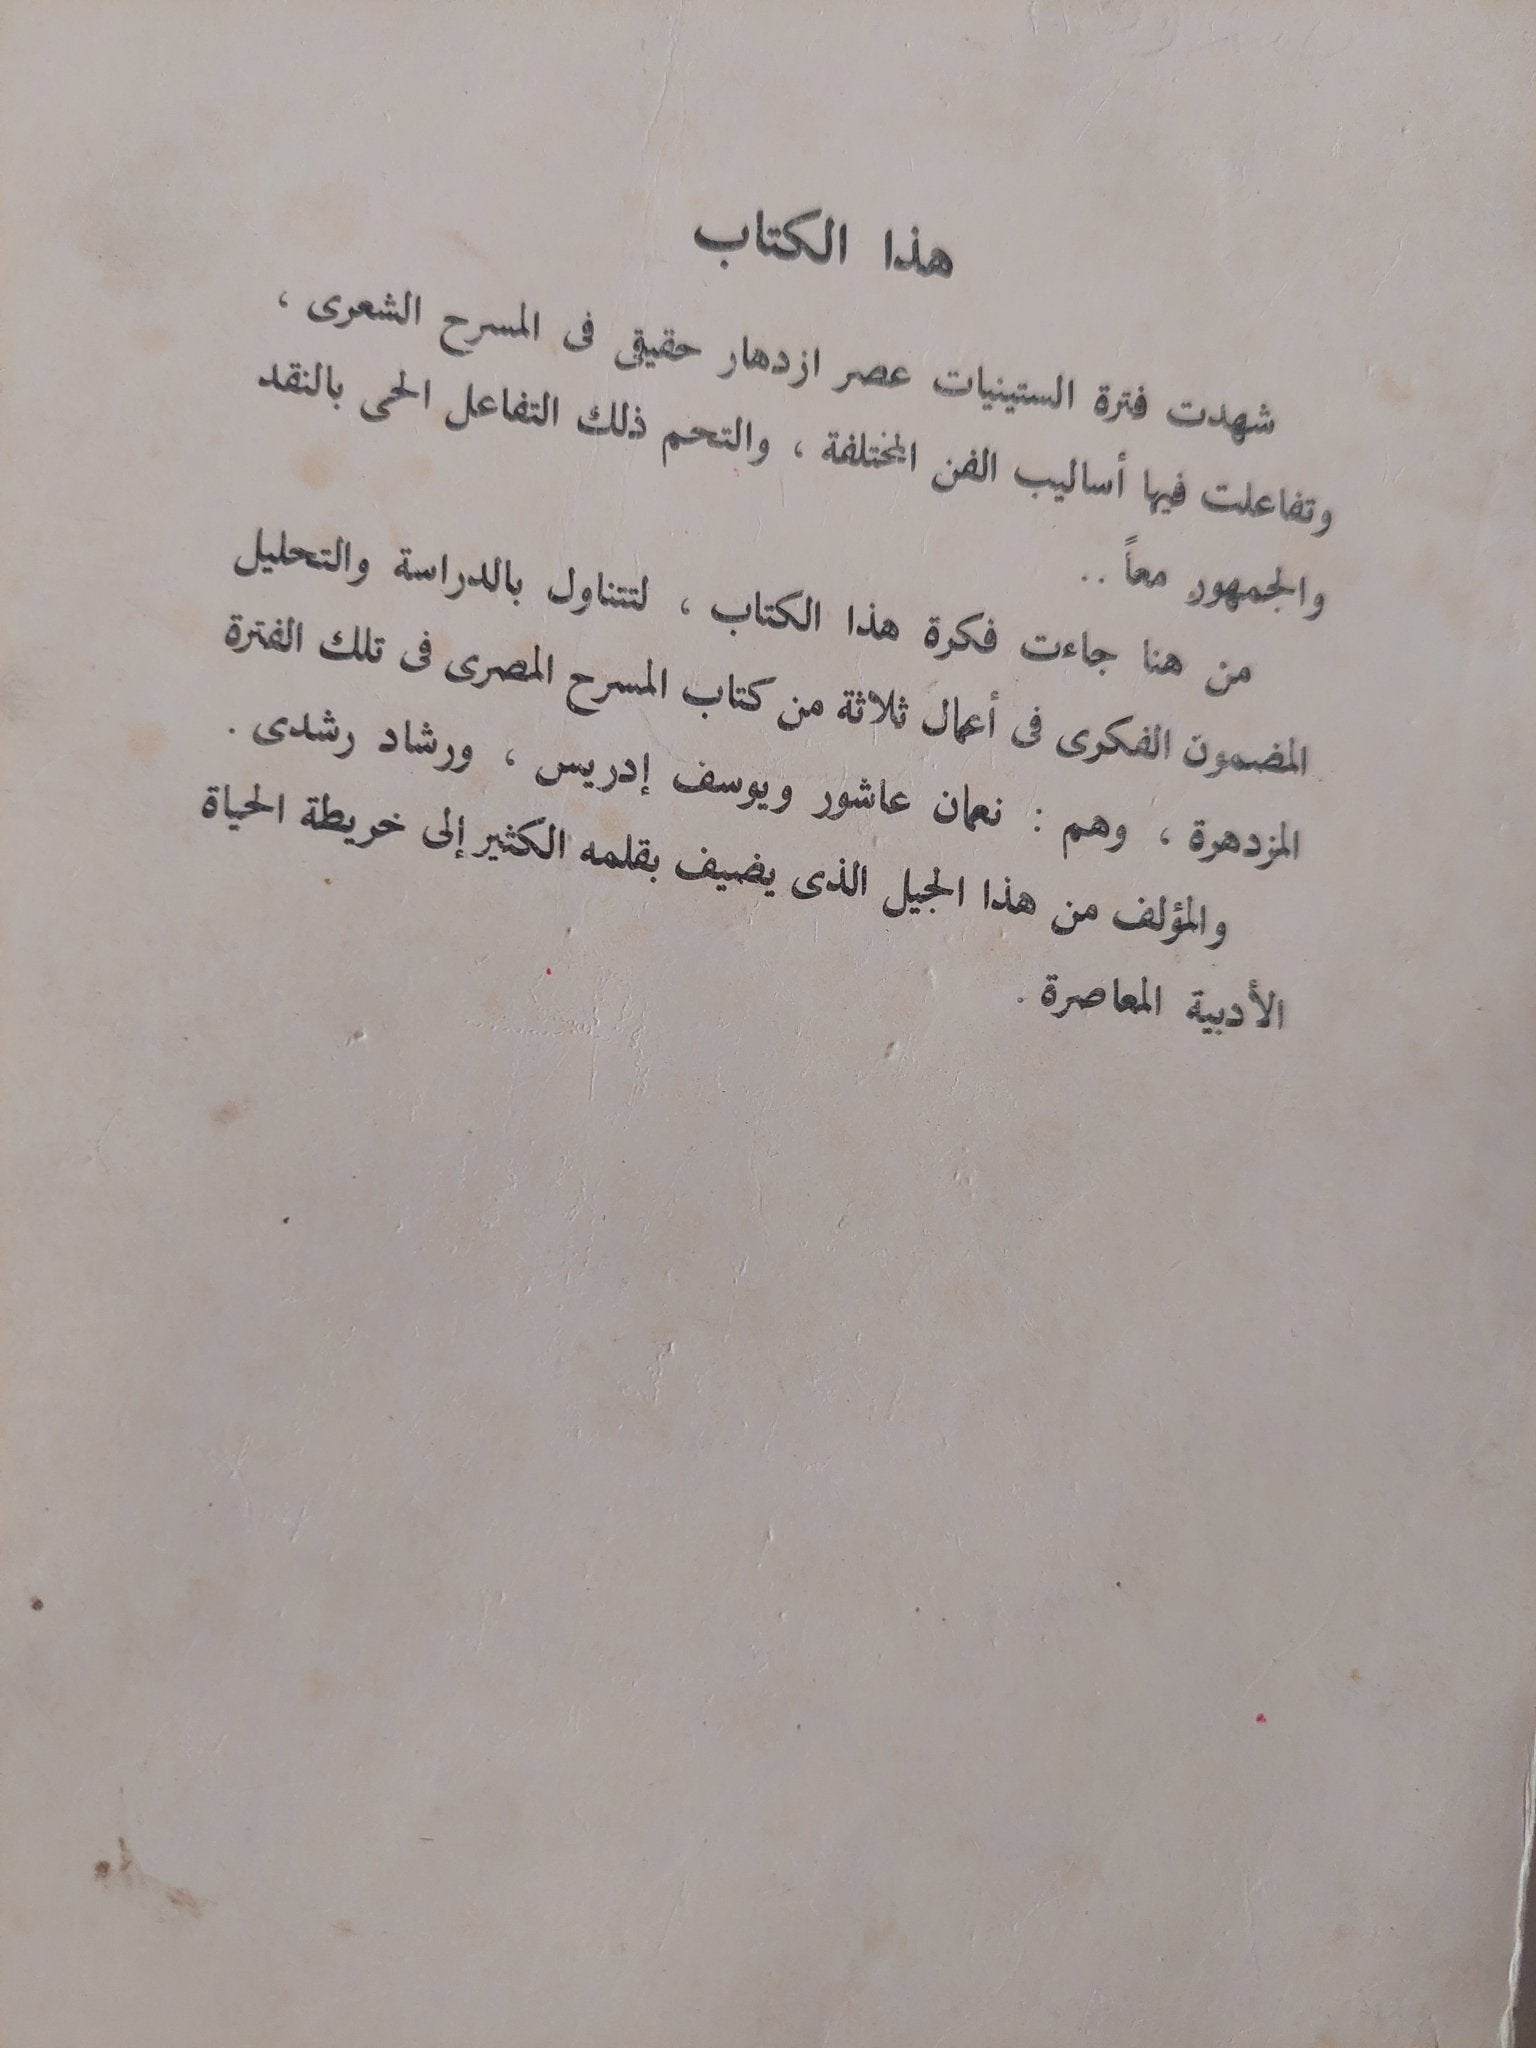 هذا الكتاب
شهدت فترة الستينيات عصر ازدهار حقيقى فى المسرح الشعرى ،
وتفاعلت فيها أساليب الفن المختلفة ، والتحم ذلك التفاعل الحى بالنقد
والجمهور معاً ..
من هنا جاءت فكرة هذا الكتاب ، لتتناول بالدراسة والتحليل
المضمون الفكرى فى أعمال ثلاثة من كتاب المسرح المصرى فى تلك الفترة
المزدهرة ، وهم : نعمان عاشور ويوسف إدريس ، ورشاد رشدى .
والمؤلف من هذا الجيل الذى يضيف بقلمه الكثير إلى خريطة الحياة
الأدبية المعاصرة .